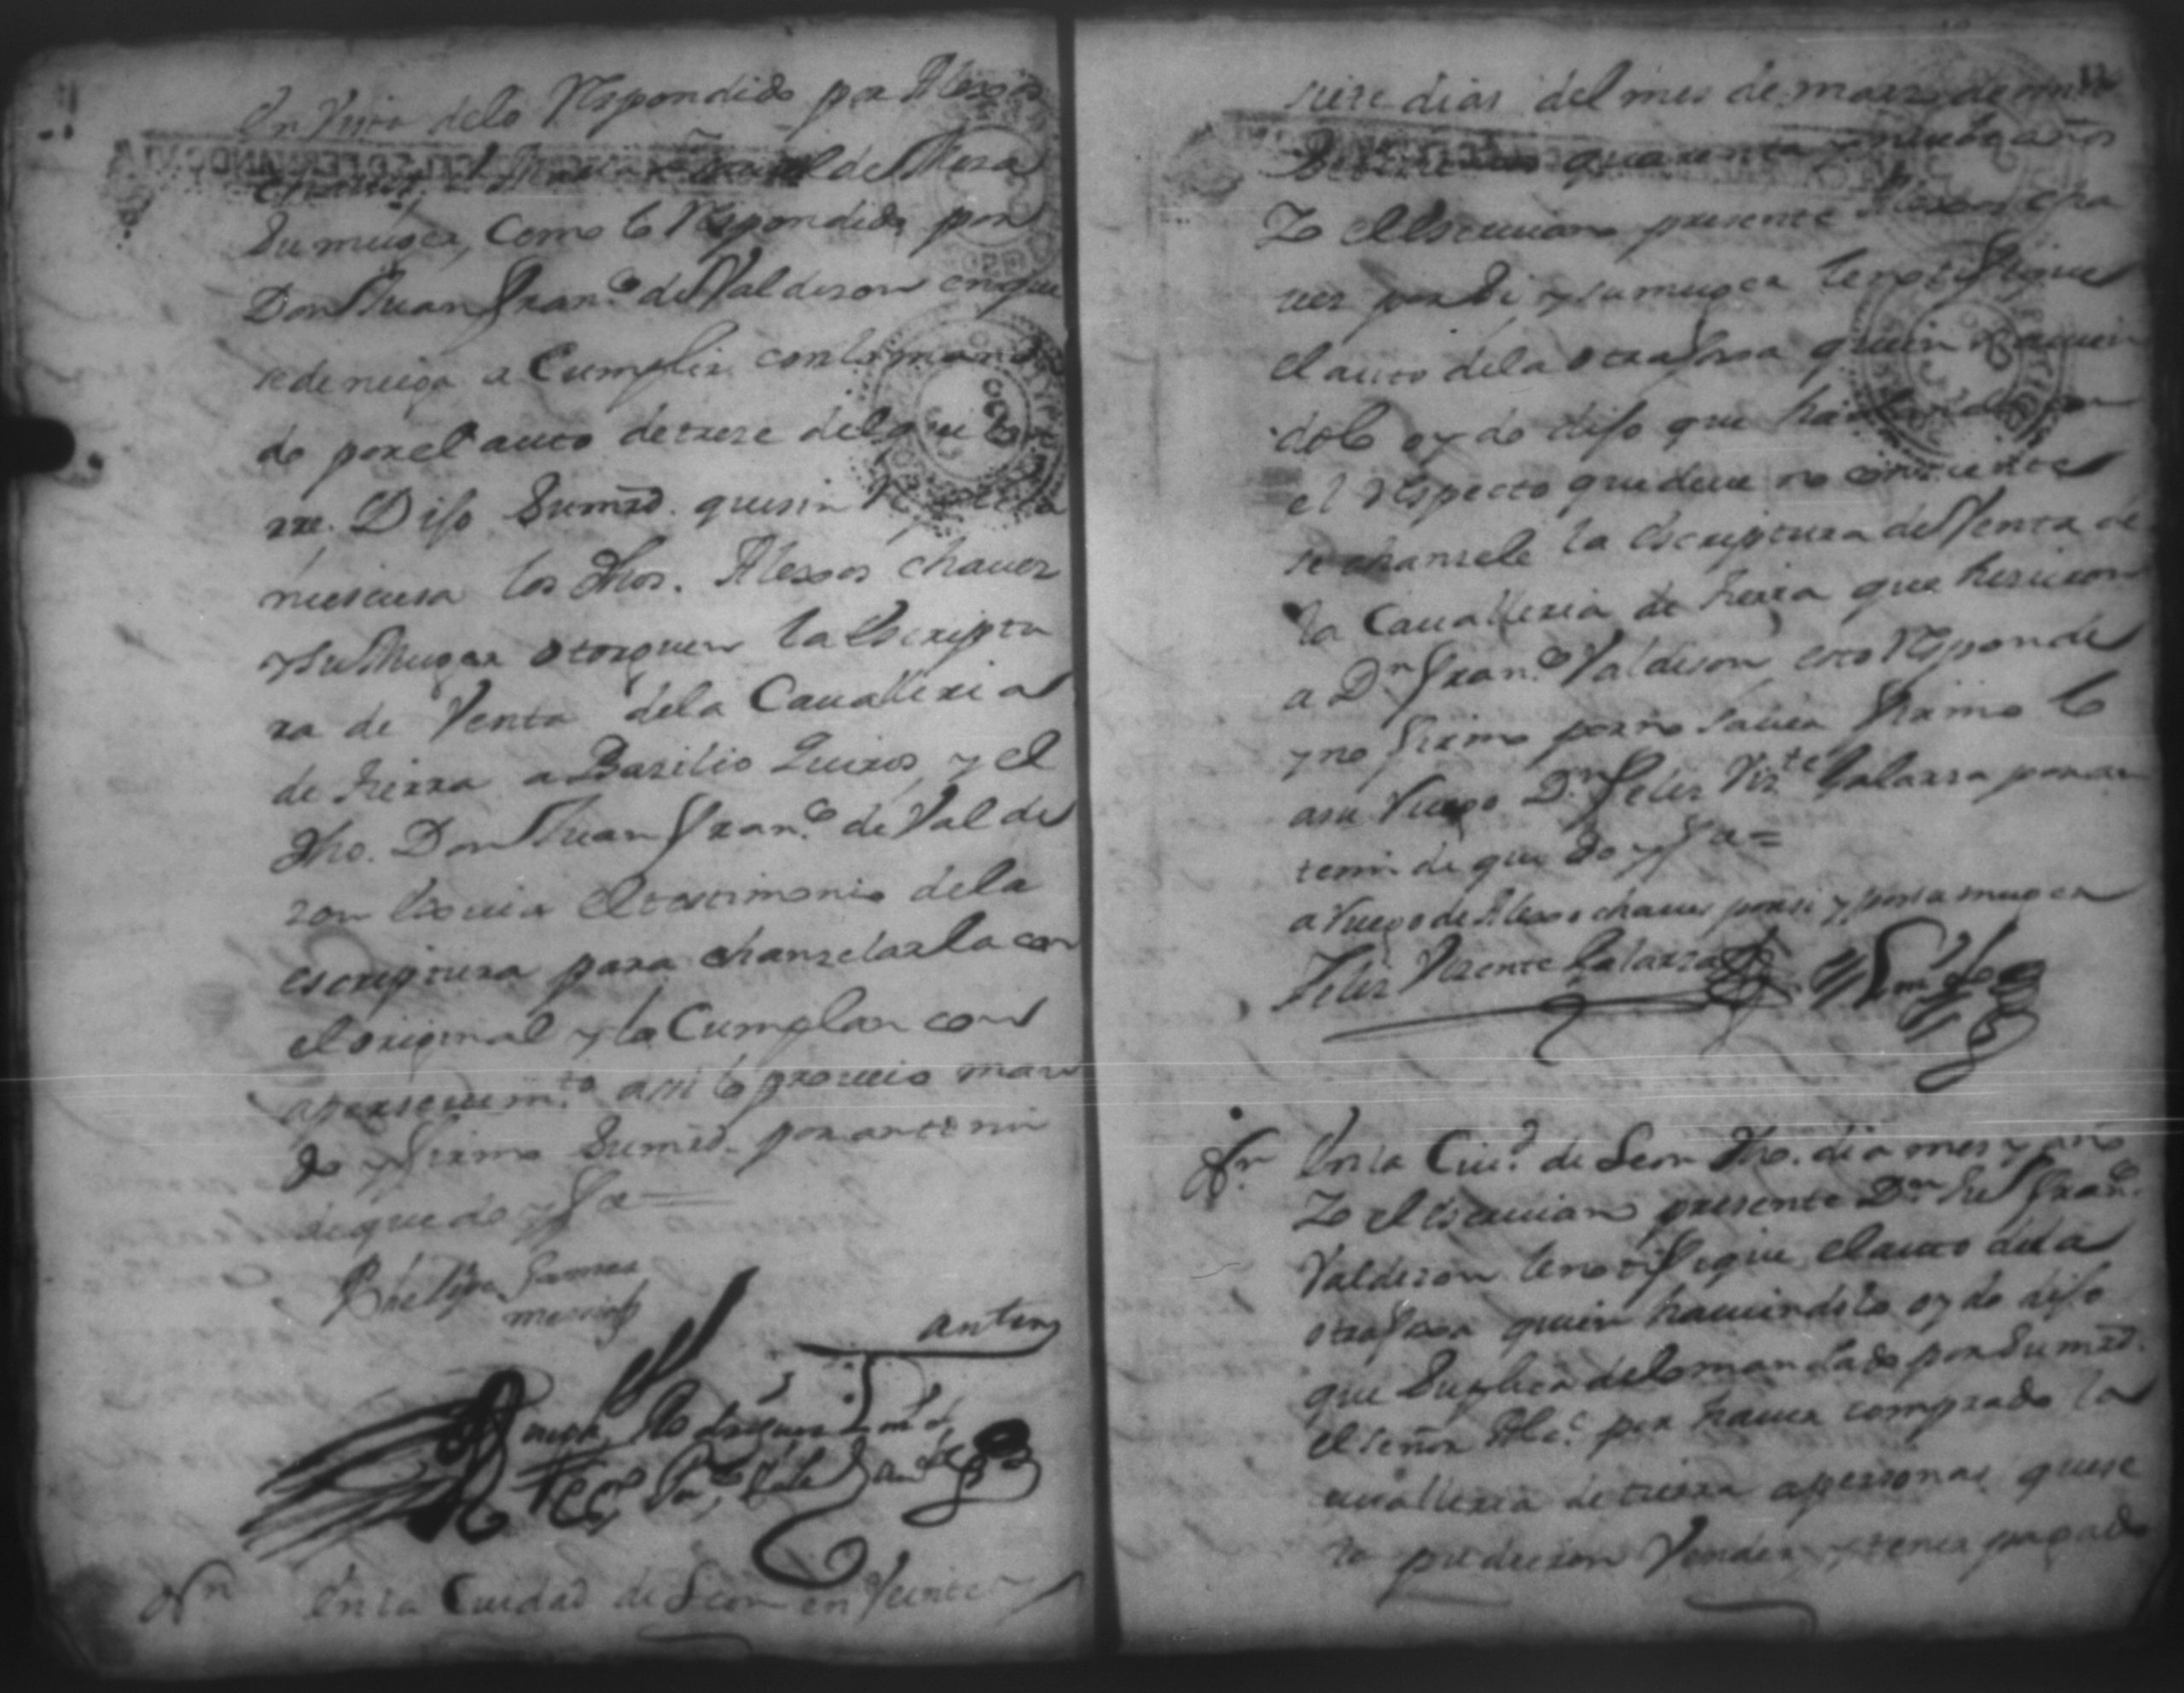 En Vista delo Respondido por Alexos
de Mesa
Su muger, Como lo Respondido por
Don Juan Fran.co de Valdeson en que
se deniega a Cumplir con lo manda
do por el auto de trese del que Cor
rre. Dijo Sumrd. que sin
ni escusa los dhos. Alexos chaues
y su Muger otorguen la Escriptu
ra de Venta dela Cauallexia
de tierra a Basilio Quiros, y el
dho. Don Juan Fran.co de Valde
son el testimonio dela
escriptura para chanselarla con
el original y lo Cumplan con
apersevim.to assi lo proveio man
do y firmo Sumrd. por ante mi
de que doy fe =
Phelipe Gamez
messia
ante my
En la Ciudad de Leon en Veinte y
12
siete dias del mes de marzo de mill
Setecientos quarenta y nuebe años
Yo el Escriuano presente Alexos cha
ues por Si y su muger le notifique
el auto dela otra foxa quien hauien
dolo oydo dijo que hablando con
el Respecto que deue no consiente
se chansele la Escriptura de Venta de
la Caualleria de tierra que hisieron
a Dn Fran.co Valdeson esto Responde
y no firmo por no Sauer firmo lo
a su Ruego Dn. Felis Vizte Galarza por an
temi de que doy fe =
a Ruego de Alexos chaues por si y por su muger
Felis Vizente Galarza
En la Ciud. de Leon dho. dia mes y año
Yo el escriuano presente Dn Ju Fran.co
Valdeson le notifique el auto dela
otra foxa quien hauiendolo oydo dijo
que Suplica delo mandado por Sumrd.
el señor Alc.e por hauer comprado la
caualleria de tierra a personas que se
la pudieron Vender, y tener pagado